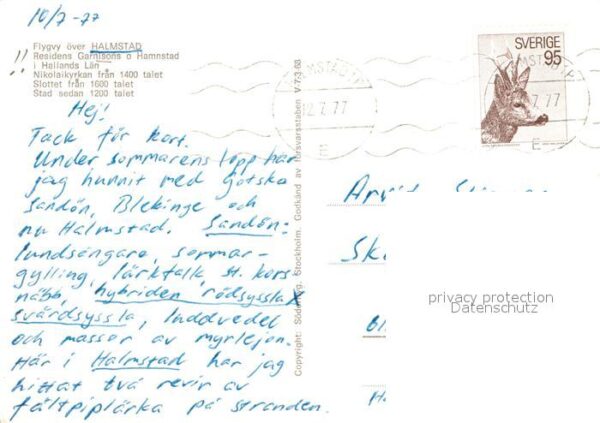 10/7-77
Flygvy över HALMSTAD
!! Residens Garnisons o Hamnstad
i Hallands Län
Nikolaikyrkan från 1400 talet
Slottet från 1600 talet
Stad sedan 1200 talet
Hej!
Tack för kort.
Under sommarens lopp har
jag hunnit med Gotska
Sandön, Blekinge och
nu Halmstad. Sandön:
lundsångare, sommar-
gylling, lärkfalk, st. kors
näbb, hybriden rödsyssla x
svärdsyssla, luddvedel
och massor av myrlejon.
Här i Halmstad har jag
hittat två revir av
fältpiplärka på stranden.
Godkänd av försvarsstaben V-7-3-68
Stockholm.
Copyright:
SVERIGE
95
12.7.77
7.77
E
privacy protection
Datenschutz